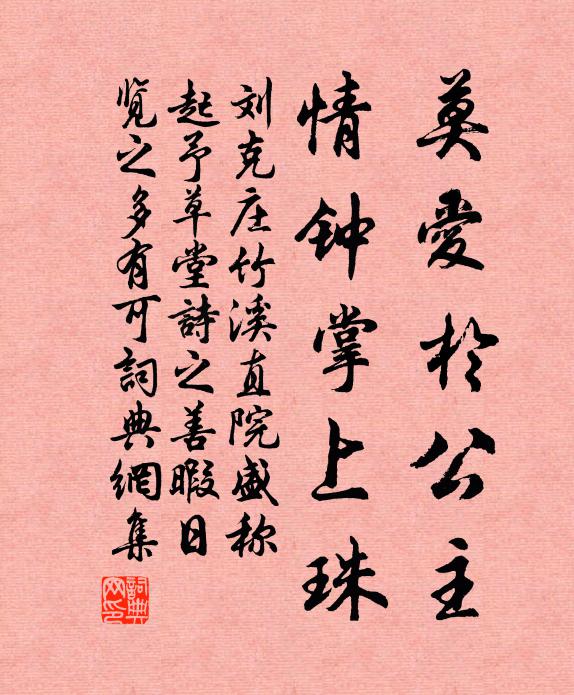 莫愛於公主
情钟掌上珠
刘克庄竹溪直院盛称
起予草堂詩之善暇日
览之多有可詞典網集
詞典
网印